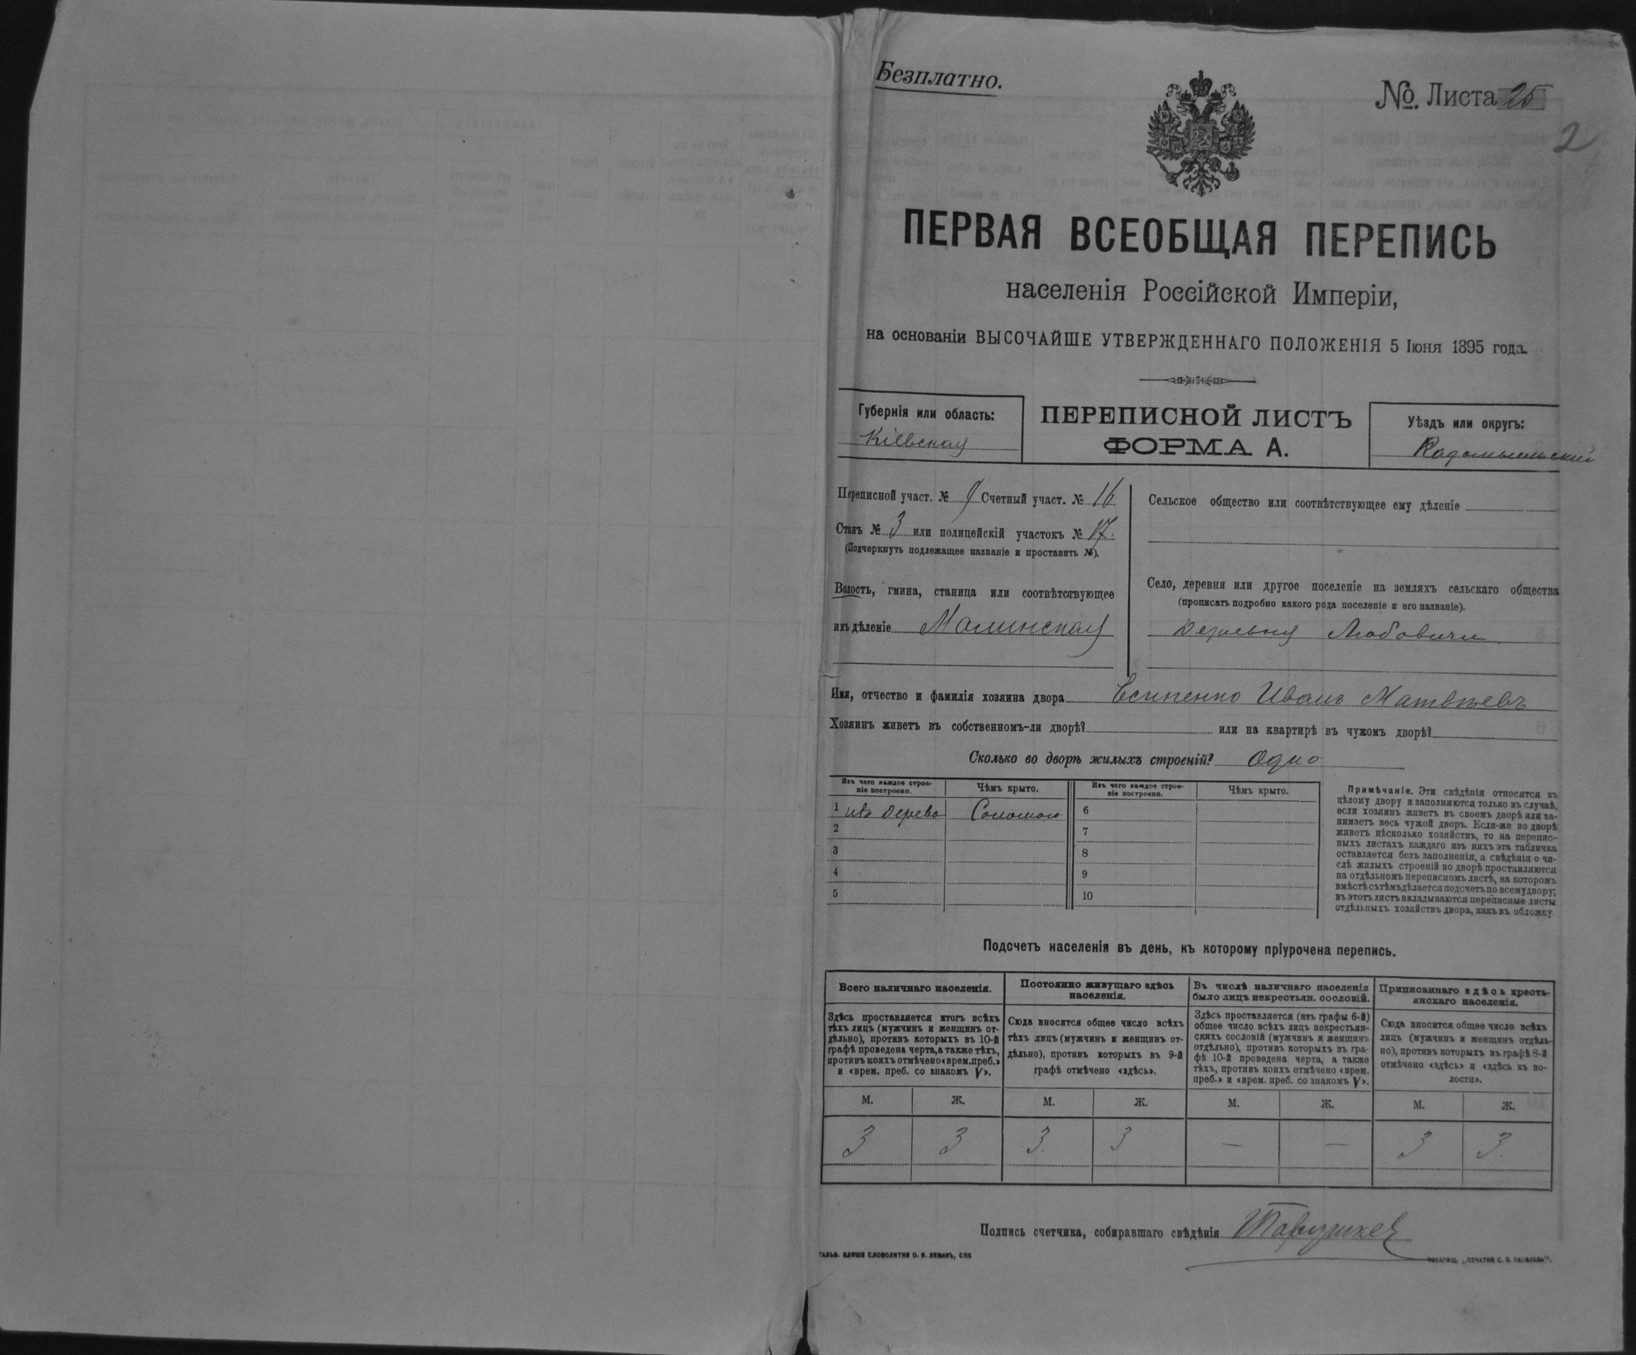 Безплатно.
№. Листа 25
2
ПЕРВАЯ ВСЕОБЩАЯ ПЕРЕПИСЬ
населенія Россійской Имперіи,
на основаніи ВЫСОЧАЙШЕ УТВЕРЖДЕННАГО ПОЛОЖЕНІЯ 5 Іюня 1895 года.
Губернія или область:
Кіевская
ПЕРЕПИСНОЙ ЛИСТЪ
ФОРМА А.
Уѣздъ или округъ:
Радомысльскій
Переписной участ. № 9 Счетный участ. № 16
Станъ № 3 или полицейскій участокъ № 17.
(Подчеркнуть подлежащее названіе и проставить №).
Волость, гмина, станица или соотвѣтствующее
имъ дѣленіе Малинская
Сельское общество или соотвѣтствующее ему дѣленіе
Село, деревня или другое поселеніе на земляхъ сельскаго общества
(прописать подробно какого рода поселеніе и его названіе).
Деревня Любовичи
Имя, отчество и фамилія хозяина двора Есипенко Иванъ Матвѣевъ
Хозяинъ живетъ въ собственномъ-ли дворѣ? или на квартирѣ въ чужомъ дворѣ?
Сколько во дворѣ жилыхъ строеній? Одно
Изъ чего каждое строе-
ніе построено.
Чѣмъ крыто.
Изъ чего каждое строе-
ніе построено.
Чѣмъ крыто.
1 изъ дерева Соломою 6
2 7
3 8
4 9
5 10
Примѣчаніе. Эти свѣдѣнія относятся къ
цѣлому двору и заполняются только въ случаѣ,
если хозяинъ живетъ въ своемъ дворѣ или за-
нимаетъ весь чужой дворъ. Если-же во дворѣ
живетъ нѣсколько хозяйствъ, то на перепис-
ныхъ листахъ каждаго изъ нихъ эта табличка
оставляется безъ заполненія, а свѣдѣнія о чи-
слѣ жилыхъ строеній во дворѣ проставляются
на отдѣльномъ переписномъ листѣ, на которомъ
вмѣстѣ съ тѣмъ дѣлается подсчетъ по всему двору;
въ этотъ листъ вкладываются переписные листы
отдѣльныхъ хозяйствъ двора, какъ въ обложку.
Подсчетъ населенія въ день, къ которому пріурочена перепись.
Всего наличнаго населенія.
Здѣсь проставляется итогъ всѣхъ
тѣхъ лицъ (мужчинъ и женщинъ от-
дѣльно), противъ которыхъ въ 10-й
графѣ проведена черта, а также тѣхъ,
противъ коихъ отмѣчено «врем. преб.»
и «врем. преб. со знакомъ V».
Постоянно живущаго здѣсь
населенія.
Сюда вносится общее число всѣхъ
тѣхъ лицъ (мужчинъ и женщинъ от-
дѣльно), противъ которыхъ въ 9-й
графѣ отмѣчено «здѣсь».
Въ числѣ наличнаго населенія
было лицъ некрестьян. сословій.
Здѣсь проставляется (изъ графы 6-й)
общее число всѣхъ лицъ некрестьян-
скихъ сословій (мужчинъ и женщинъ
отдѣльно), противъ которыхъ въ гра-
фѣ 10-й проведена черта, а также
тѣхъ, противъ коихъ отмѣчено «врем.
преб.» и «врем. преб. со знакомъ V».
Приписаннаго здѣсь кресть-
янскаго населенія.
Сюда вносится общее число всѣхъ
лицъ (мужчинъ и женщинъ отдѣль-
но), противъ которыхъ въ графѣ 8-й
отмѣчено «здѣсь» и «здѣсь къ во-
лости».
М. Ж. М. Ж. М. Ж. М. Ж.
3 3 3. 3 — — 3 3.
Подпись счетчика, собиравшаго свѣдѣнія
ГАЛЬВ. КЛИШЕ СЛОВОЛИТНИ О. И. ЛЕМАНЪ, СПБ
ТОВАРИЩ. „ПЕЧАТНЯ С. П. ЯКОВЛЕВА".